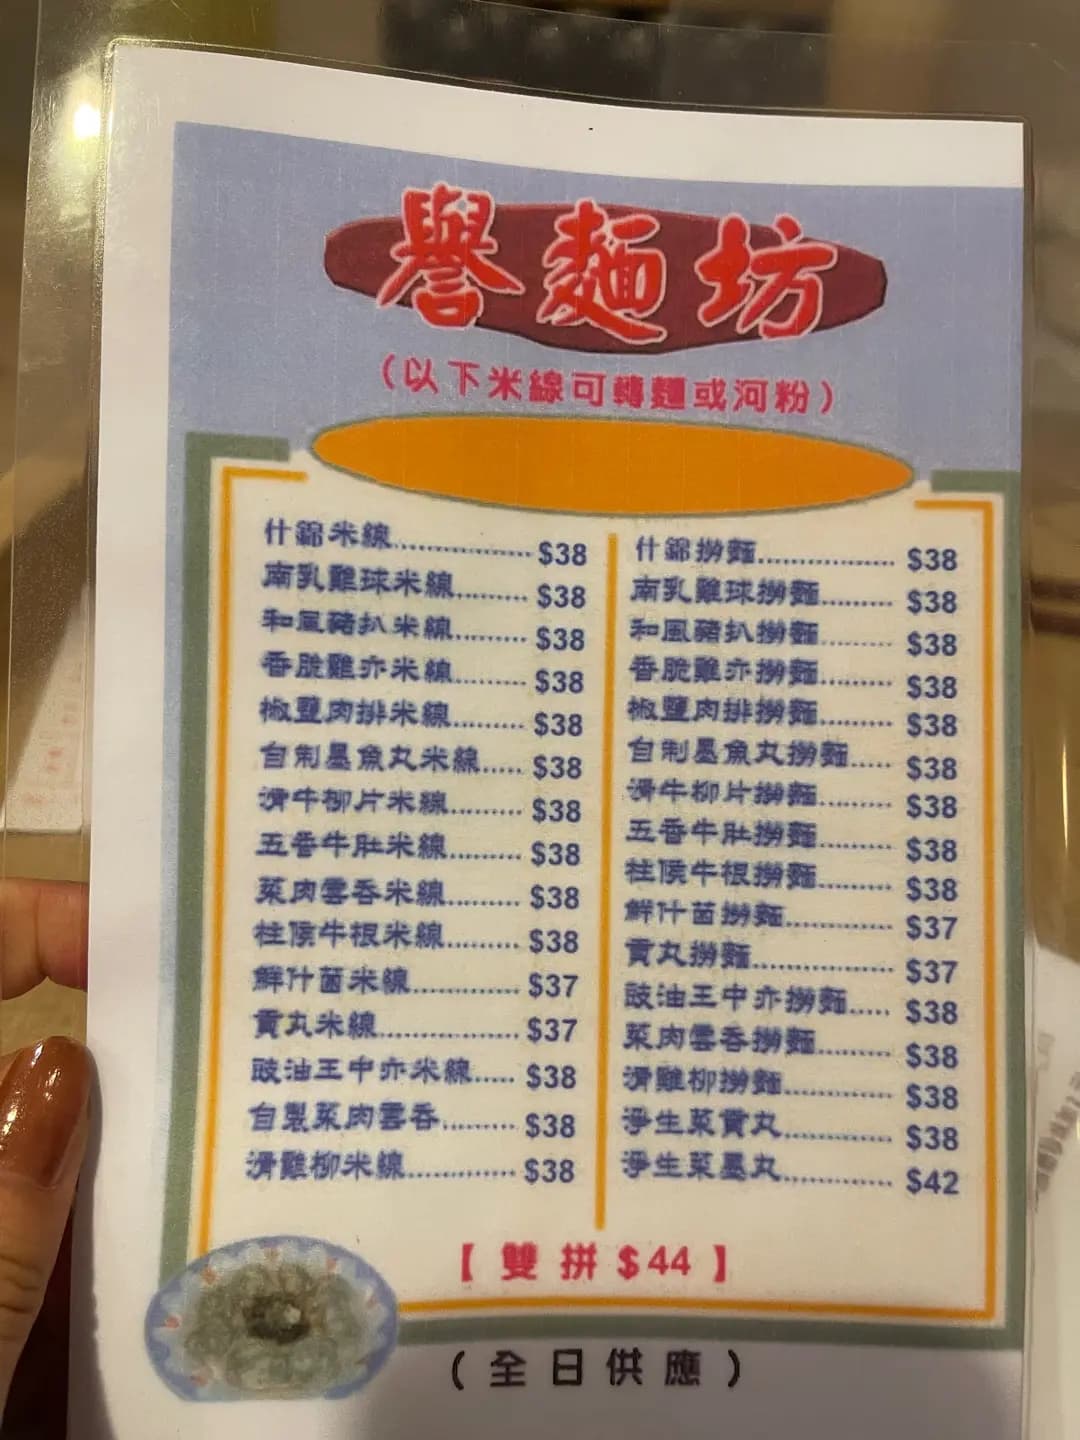 譽麵坊
(以下米線可轉麵或河粉)
什錦米線 $38
南乳雞球米線 $38
和風豬扒米線 $38
香脆雞亦米線 $38
椒鹽肉排米線 $38
自制墨魚丸米線 $38
滑牛柳片米線 $38
五香牛肚米線 $38
菜肉雲吞米線 $38
柱侯牛根米線 $38
鮮什菌米線 $37
貢丸米線 $37
豉油王中亦米線 $38
自製菜肉雲吞 $38
滑雞柳米線 $38
什錦撈麵 $38
南乳雞球撈麵 $38
和風豬扒撈麵 $38
香脆雞亦撈麵 $38
椒鹽肉排撈麵 $38
自制墨魚丸撈麵 $38
滑牛柳片撈麵 $38
五香牛肚撈麵 $38
柱侯牛根撈麵 $38
鮮什菌撈麵 $37
貢丸撈麵 $37
豉油王中亦撈麵 $38
菜肉雲吞撈麵 $38
滑雞柳撈麵 $38
淨生菜貢丸 $38
淨生菜墨丸 $42
【雙拼$44】
(全日供應)